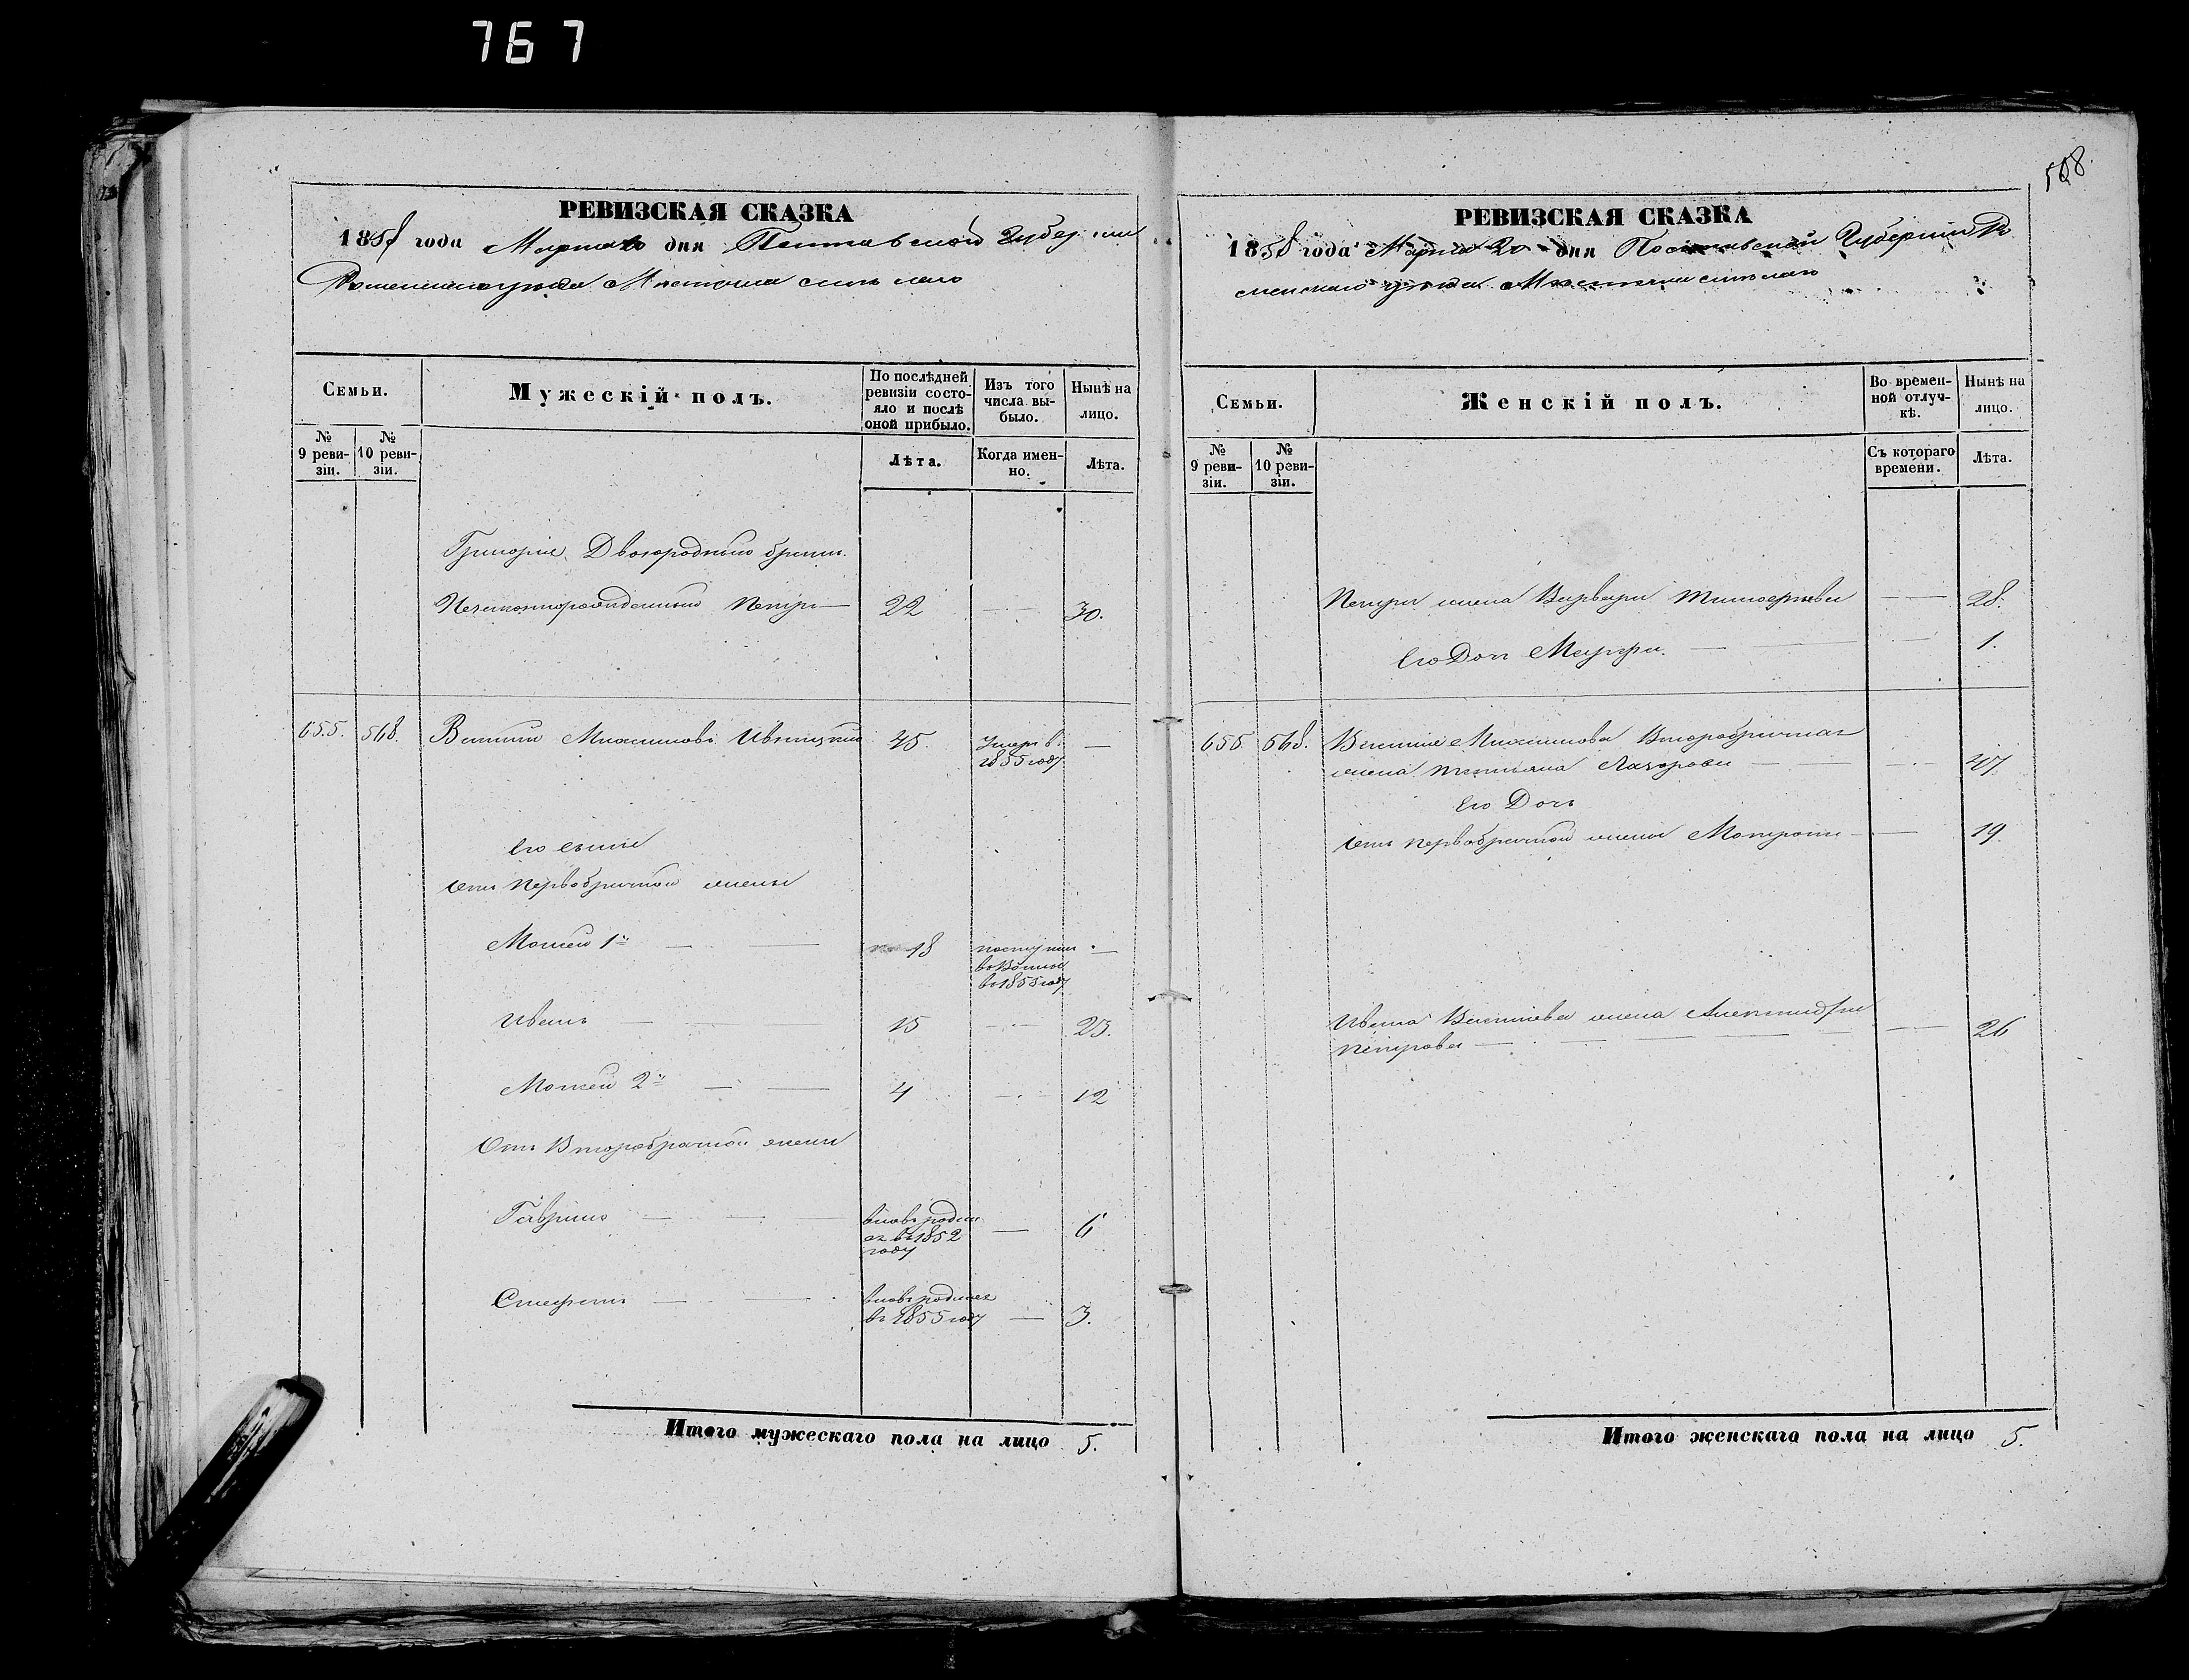 767
508.
РЕВИЗСКАЯ СКАЗКА
1858 года Марта 20 дня Полтавской Губернии
Роменскаго уезда Местечка
Семьи.
Мужескій полъ.
По послѣдней ревизіи состояло и послѣ оной прибыло.
Изъ того числа выбыло.
Нынѣ на лицо.
№ 9 ревизіи.
№ 10 ревизіи.
Лѣта.
Когда именно.
Лѣта.
Григорія Двоюродный братъ
Незаконнорожденный Петръ — 22 — 30.
655. 568. Василий 45. Умеръ въ 1855 году —
Его сыны
Отъ первобрачной жены
Мойсей 1й — 18 поступил в 1855 году —
Иванъ — 15 — 23.
Мойсей 2й — 4 — 12
Отъ Второбрачной жены
Гаврило — вновь родился въ 1852 году — 6
Стефанъ — вновь родился въ 1855 году — 3.
Итого мужескаго пола на лицо 5.
РЕВИЗСКАЯ СКАЗКА
1858 года Марта 20 дня Полтавской Губернии Ро
менскаго уезда Местечка
Семьи.
Женскій полъ.
Во временной отлучкѣ.
Нынѣ на лицо.
№ 9 ревизіи.
№ 10 ревизіи.
Съ котораго времени.
Лѣта.
Петра жена Варвара — 28.
Его Дочь — 1.
655. 568. Второбрачная
жена Татьяна Лазарова — 47.
Его Дочь
Отъ первобрачной жены Матрона — 19.
Ивана Василіева жена Александра
Петрова — 26
Итого женскаго пола на лицо 5.